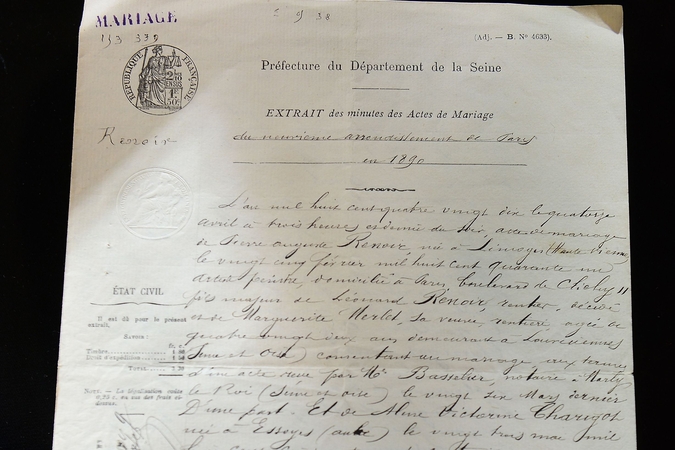 MARIAGE
(Adj. — B. Nº 4633).
RÉPUBLIQUE FRANÇAISE
Préfecture du Département de la Seine
EXTRAIT des minutes des Actes de Mariage
du neuvième arrondissement de Paris
en 1890
Renoir
L'an mil huit cent quatre vingt dix le quatorze
avril à trois heures et demie du soir, acte de mariage
de Pierre Auguste Renoir né à Limoges (Haute Vienne)
le vingt cinq février mil huit cent quarante un
artiste peintre, domicilié à Paris, boulevard de Clichy 11
fils majeur de Léonard Renoir, rentier, décédé
et de Marguerite Merlet, sa veuve, rentière, agée de
quatre vingt deux ans demeurant à Louveciennes
(Seine et Oise) consentant au mariage aux termes
d'une acte reçu par Me Basselier, notaire à Marly
le Roi (Seine et oise) le vingt six Mars dernier
D'une part. Et de Aline Victorine Charigot
née à Essoyes (aube) le vingt trois mai mil
ÉTAT CIVIL
Il est dû pour le présent
extrait,
SAVOIR:
Timbre
Droit d'expédition
NOTA. — La légalisation coûte